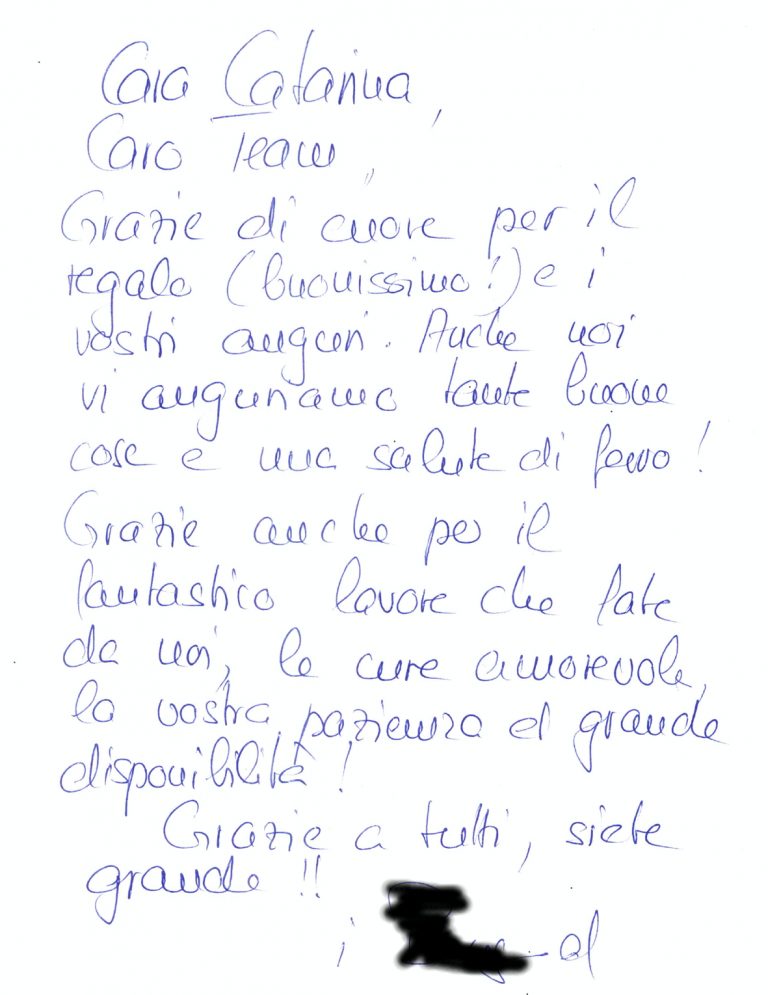 Cara Catarina,
Caro Team,
Grazie di cuore per il
regalo (buonissimo!) e i
vostri auguri. Anche noi
vi auguriamo tante buone
cose e una salute di ferro!
Grazie anche per il
fantastico lavore che fate
da noi, le cure amorevole,
la vostra pazienza el grande
disponibilità!
Grazie a tutti, siete
grande!!
i